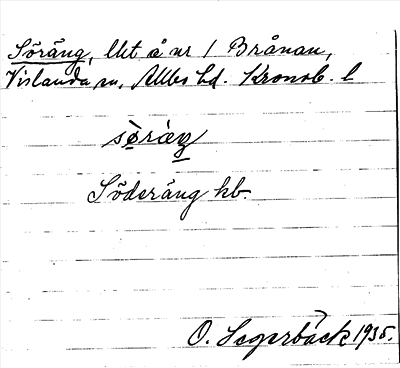 Söräng, lht å nr 1 Brånan,
Vislanda sn, Allbo hd. Kronob. l
söräŋ
Söderäng kb.
O. Segerbäck 1935.